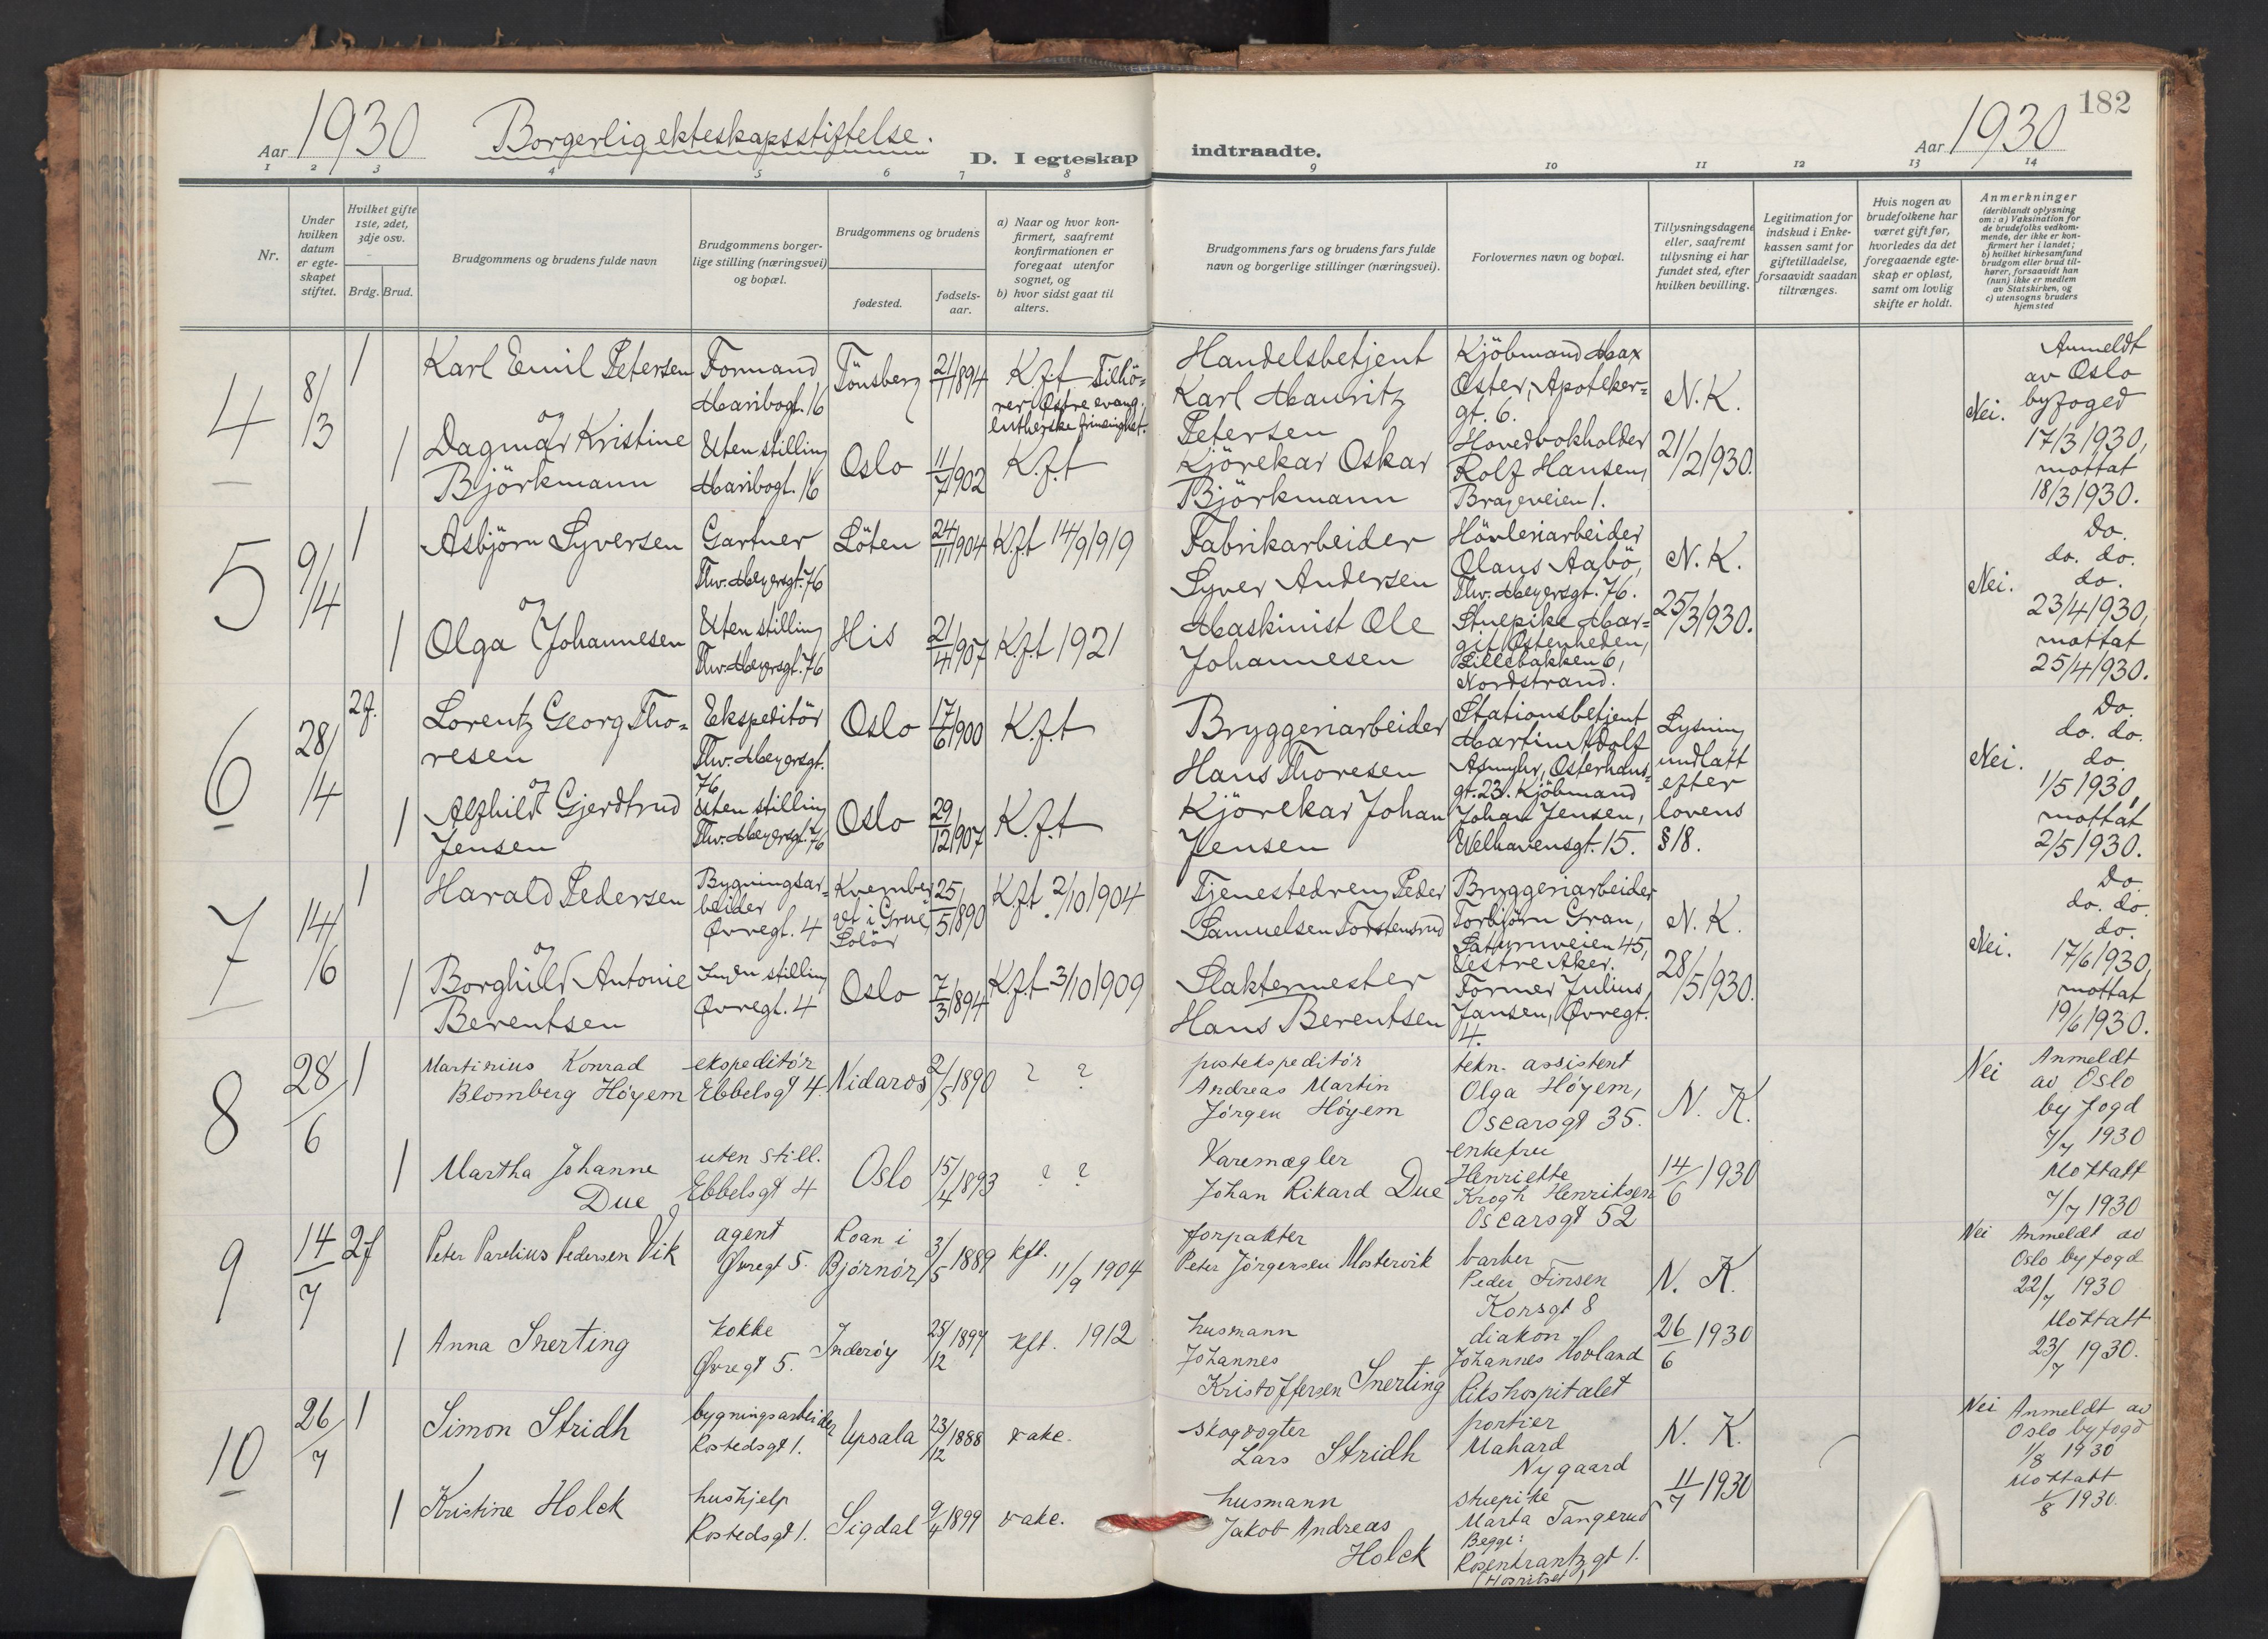 Aar 1930 Borgerlig ekteskapsstiftelse. D. I egteskap indtraadte. Aar 1930 182
1 2 3 4 5 6 7 8 9 10 11 12 13 14
Nr.
Under hvilken datum er egteskapet stiftet.
Hvilket gifte 1ste, 2det, 3dje osv.
Brdg. Brud.
Brudgommens og brudens fulde navn
Brudgommens borgerlige stilling (næringsvei) og bopæl.
Brudgommens og brudens
fødested.
fødselsaar.
a) Naar og hvor konfirmert, saafremt konfirmationen er foregaat utenfor sognet, og
b) hvor sidst gaat til alters.
Brudgommens fars og brudens fars fulde navn og borgerlige stillinger (næringsvei).
Forlovernes navn og bopæl.
Tillysningsdagene eller, saafremt tillysning ei har fundet sted, efter hvilken bevilling.
Legitimation for indskud i Enkekassen samt for giftetilladelse, forsaavidt saadan tiltrænges.
Hvis nogen av brudefolkene har været gift før, hvorledes da det foregaaende egteskap er opløst, samt om lovlig skifte er holdt.
Anmerkninger
(deriblandt oplysning om: a) Vaksination for de brudefolks vedkommende, der ikke er konfirmert her i landet; b) hvilket kirkesamfund brudgom eller brud tilhører, forsaavidt han (hun) ikke er medlem av Statskirken, og c) utensogns bruders hjemsted
4 8/3 1 Karl Emil Petersen
Formand Maribogt. 16
Tönsberg 21/1 1894
K.f.t Tilhörer Østre evang. lutherske frimenighet.
Handelsbetjent Karl Mauritz Petersen
Kjöbmand Max Oster, Apotekergt. 6.
N.K. 21/2 1930.
Nei.
Anmeldt av Oslo byfoged 17/3 1930, mottat 18/3 1930.
og
1 Dagmar Kristine Björkmann
Uten stilling Maribogt. 16
Oslo 11/7 1902
K.f.t
Kjörekar Oskar Björkmann
Hovedbokholder Rolf Hansen, Brageveien 1.
5 9/4 1 Asbjörn Syversen
Gartner Thv. Meyersgt. 76
Löten 24/11 1904
K.f.t 14/9 1919
Fabrikarbeider Syver Andersen
Hövleriarbeider Olaus Aabö, Thv. Meyersgt. 76.
N.K. 25/3 1930.
Nei.
Do. do. do. do. 23/4 1930, mottat 25/4 1930.
og
1 Olga Johannesen
Uten stilling Thv. Meyersgt. 76
His 21/4 1907
K.f.t 1921
Maskinist Ole Johannesen
Stuepike Margit Østenheden, Lillebakken 6, Nordstrand.
6 28/4 2f. Lorentz Georg Thoresen
Ekspeditör Thv. Meyersgt. 76
Oslo 17/6 1900
K.f.t
Bryggeriarbeider Hans Thoresen
Stationsbetjent Martin Adolf Asmyhr, Osterhausgt. 23.
Lysning undlatt efter lovens § 18.
Nei.
Do. do. do. do. 1/5 1930, mottat 2/5 1930.
og
1 Alfhild Gjerdtrud Jensen
Uten stilling Thv. Meyersgt. 76
Oslo 29/12 1907
K.f.t
Kjörekar Johan Jensen
Kjöbmand Johan Jensen, Welhavensgt. 15.
7 14/6 1 Harald Pedersen
Bygningsarbeider Øvregt. 4
i Grue, Solör 25/5 1890
K.f.t. 2/10 1904
Tjenestedreng Peder Samuelsen Torstensrud
Bryggeriarbeider Torbjörn Gran, Saturnveien 45, Vestre Aker.
N.K. 28/5 1930.
Nei.
Do. do. do. do. 17/6 1930, mottat 19/6 1930.
og
1 Borghild Antonie Berentsen
Ingen stilling Øvregt. 4
Oslo 7/3 1894
K.f.t 3/10 1909
Slaktermester Hans Berentsen
Former Julius Jansen, Øvregt. 4.
8 28/6 1 Martinius Konrad Blomberg Høyem
ekspeditør Ebbelsgt 4.
Nidaros 2/5 1890
? ?
postekspeditør Andreas Martin Jørgen Høyem
tekn. assistent Olga Høyem, Oscarsgt 35.
N. K. 14/6 1930
Nei
Anmeldt av Oslo byfogd 7/7 1930 Mottatt 7/7 1930
1 Martha Johanne Due
uten still. Ebbelsgt 4
Oslo 15/4 1893
? ?
Varemægler Johan Rikard Due
enkefru Henriette Krogh Henriksen Oscarsgt 52
9 14/7 2f Peter Parelius Pedersen Vik
agent Øvregt 5.
Roan i Bjørnør 3/5 1889
kft. 11/9 1904
forpakter Peter Jørgensen Mostervik
barber Peder Finsen Korsgt 8
N. K. 26/6 1930
Nei
Anmeldt av Oslo byfogd 22/7 1930 Mottatt 23/7 1930.
1 Anna Snerting
kokke Øvregt 5.
Inderøy 25/12 1897
kft. 1912
husmann Johannes Kristoffersen Snerting
diakon Johannes Hovland Rikshospitalet
10 26/7 1 Simon Stridh
bygningsarbeider Rostedsgt 1.
Upsala 23/12 1888
vake.
skogvogter Lars Stridh
portier Mahard Nygaard
N. K. 11/7 1930
Nei
Anmeldt av Oslo byfogd 1/8 1930 Mottatt 1/8 1930.
1 Kristine Holck
hushjelp Rostedsgt 1.
Sigdal 9/4 1899
vake.
husmann Jakob Andreas Holck
stuepike Marta Tangerud
Begge: Rosenkrantzgt 1.